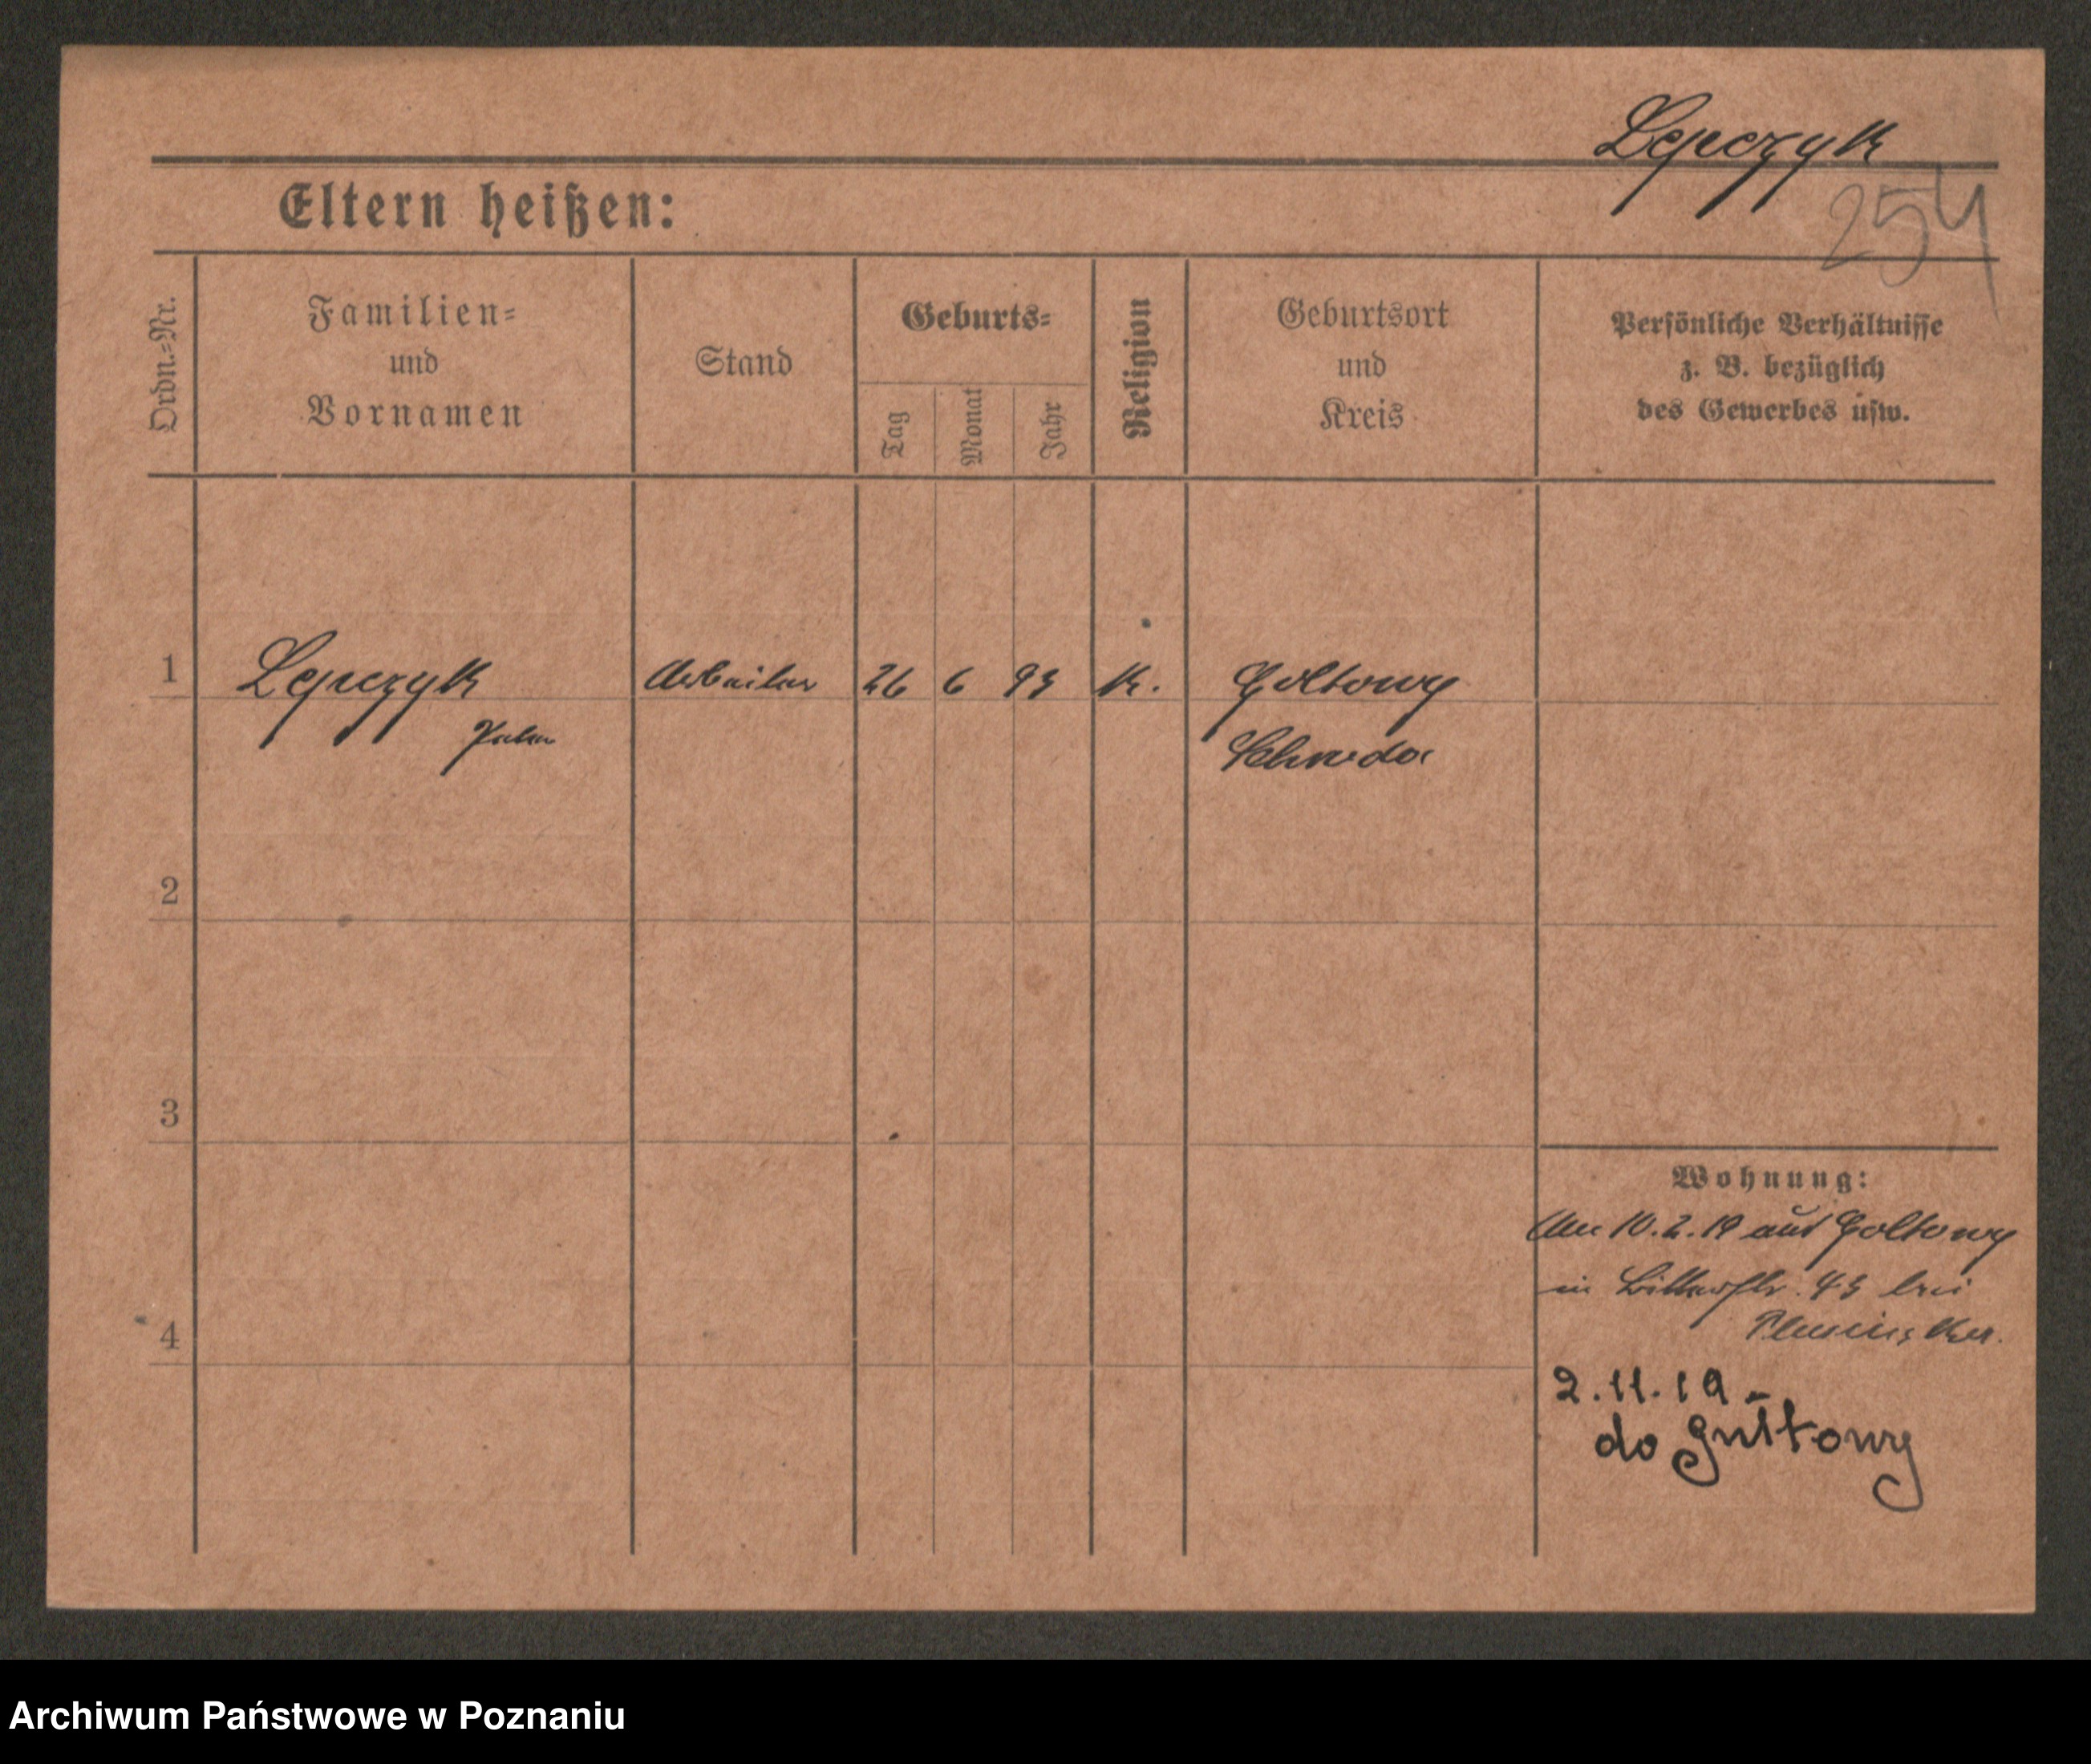 Lepczyk
254
Eltern heißen:
Ordn.=Nr.
Familien=
und
Vornamen
Stand
Geburts=
Tag
Monat
Jahr
Religion
Geburtsort
und
Kreis
Persönliche Verhältnisse
z. B. bezüglich
des Gewerbes usw.
1
Lepczyk
Arbeiter
26 6 93
K.
Goltowy
Schroda
2
3
4
Wohnung:
Am 10.2.19 aus Goltowy
in 43 bei
2.11.19 -
do Gułtowy
Archiwum Państwowe w Poznaniu